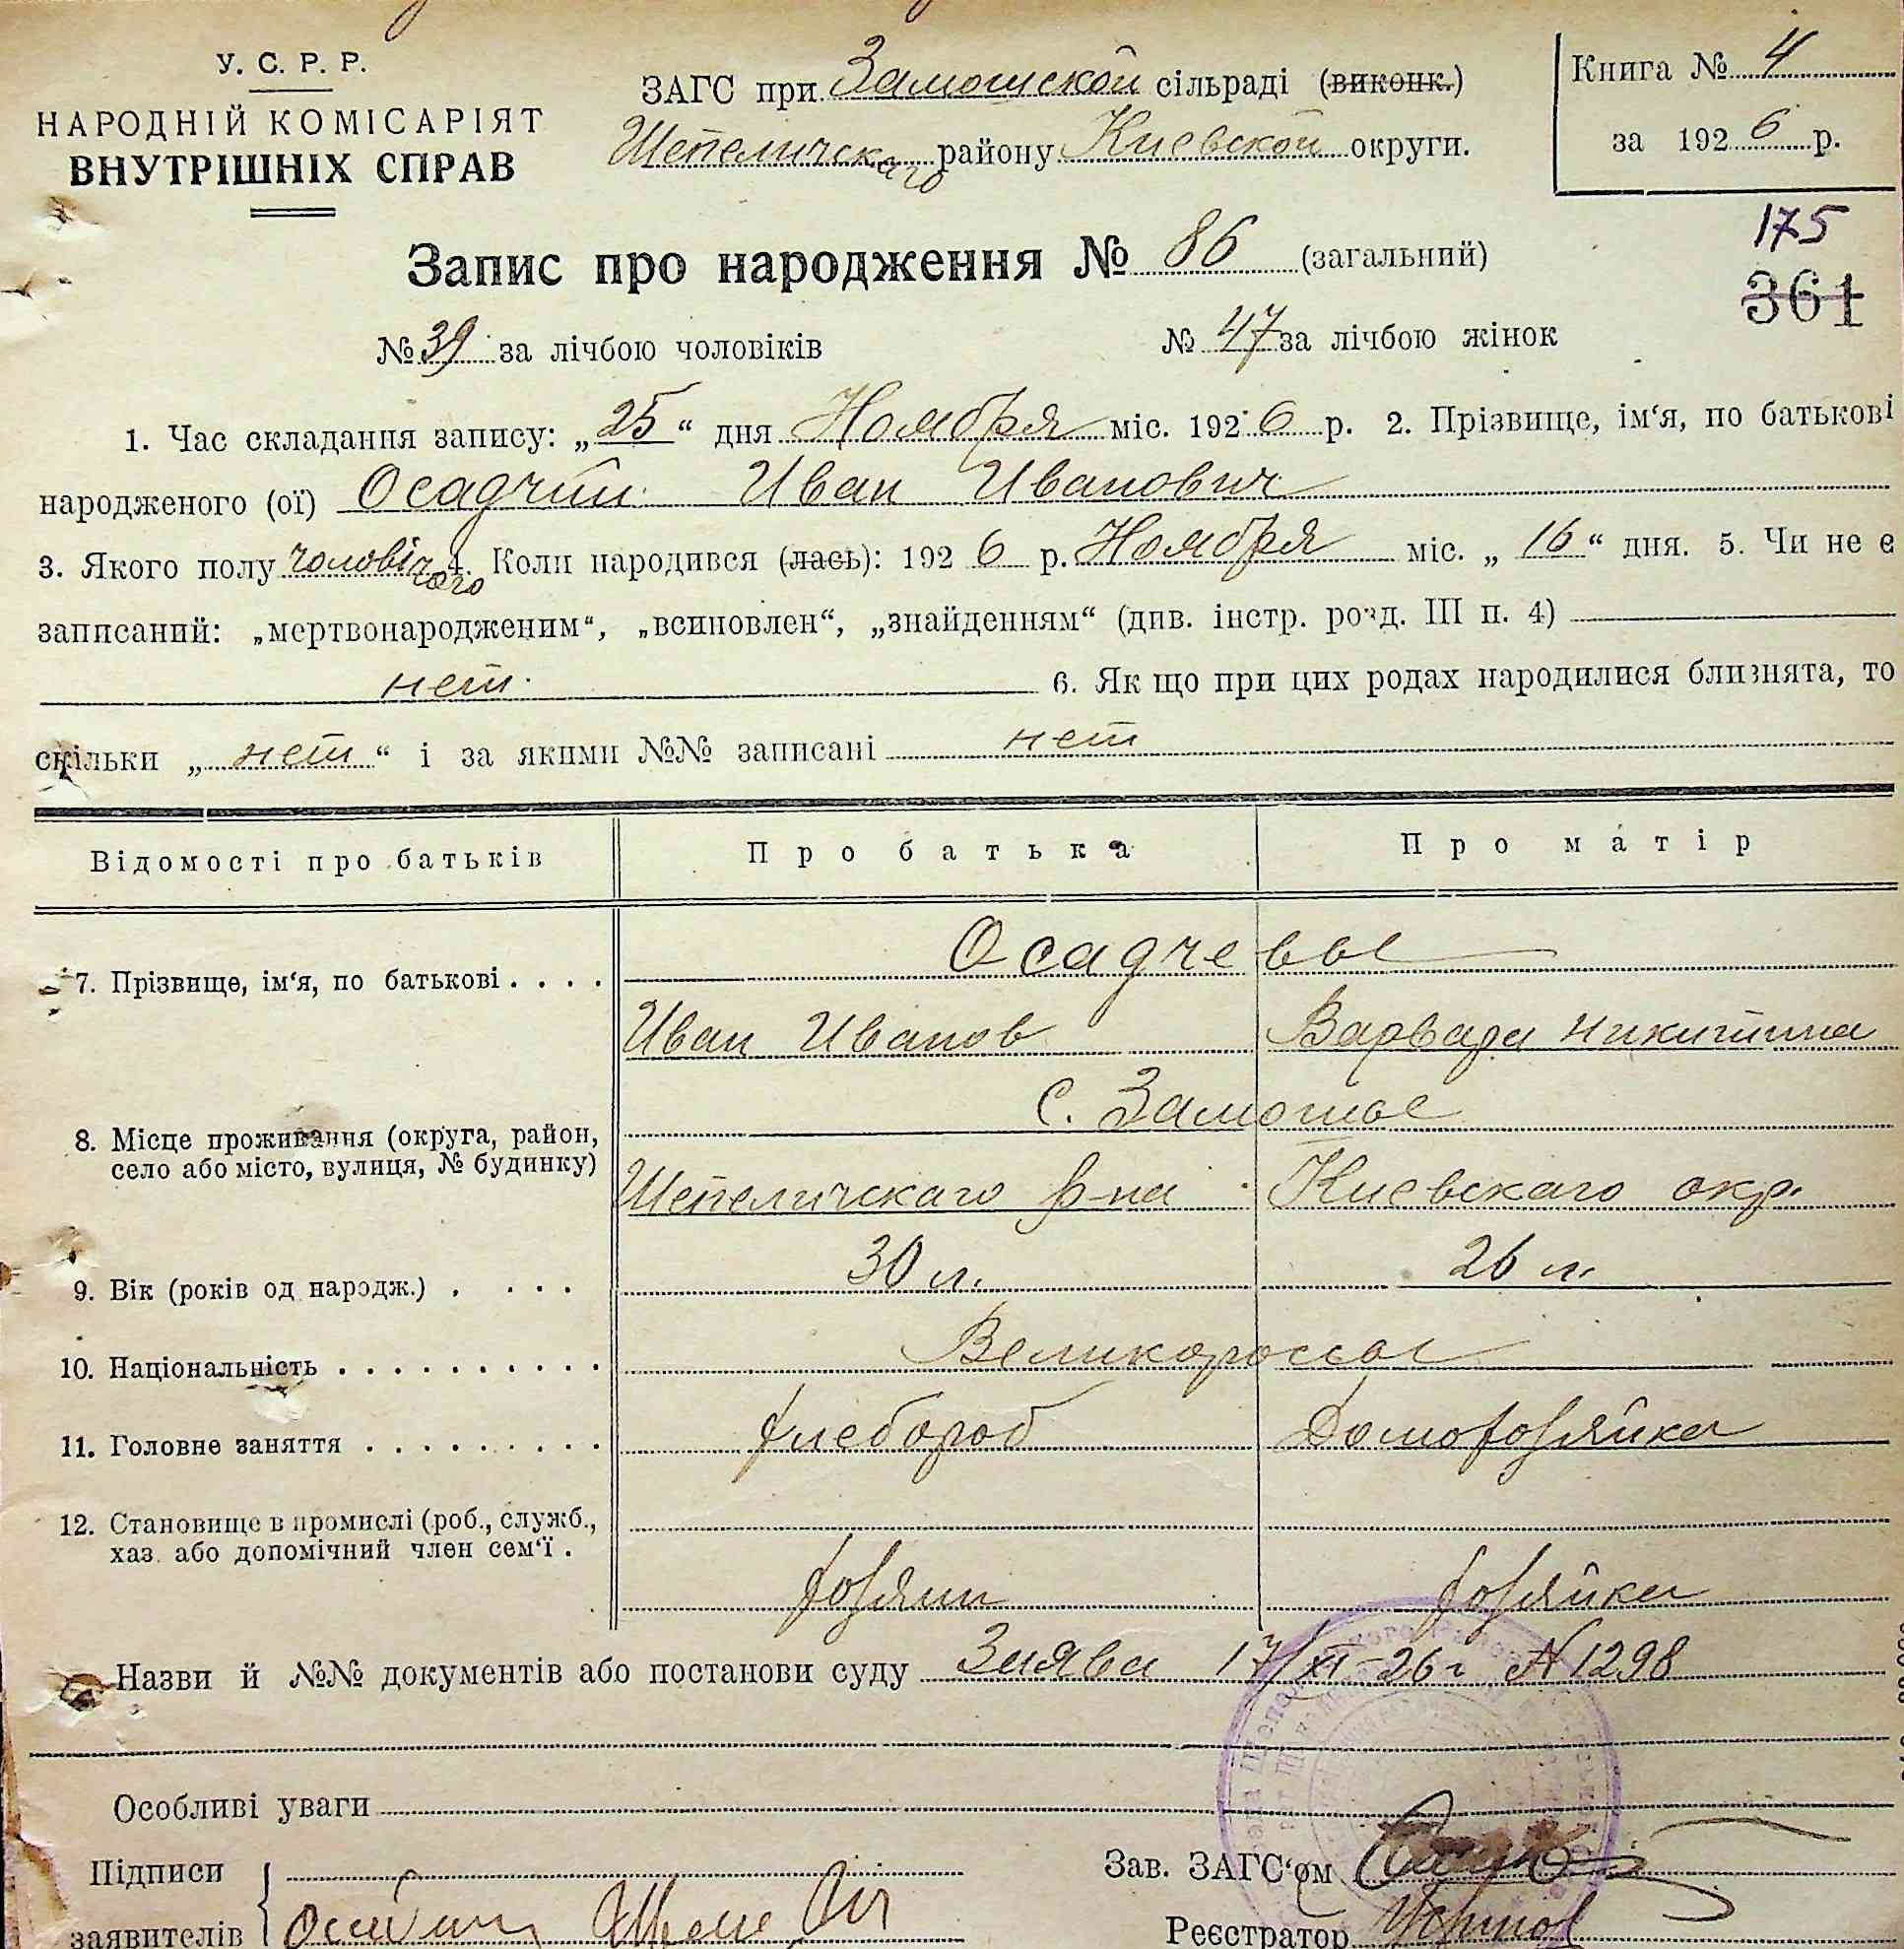 У. С. Р. Р.
НАРОДНІЙ КОМІСАРІЯТ
ВНУТРІШНІХ СПРАВ
ЗАГС при Замошской сільраді (виконк.)
Шепеличскаго району Киевской округи.
Книга № 4
за 1926 р.
175
361
Запис про народження № 86 (загальний)
№ 39 за лічбою чоловіків № 47 за лічбою жінок
1. Час складання запису: „25“ дня Ноября міс. 1926 р. 2. Прізвище, ім‘я, по батькові
народженого (ої) Осадчий Иван Иванович
3. Якого полу чоловічого 4. Коли народився (лась): 1926 р. Ноября міс. „16“ дня. 5. Чи не є
записаний: „мертвонародженим“, „всиновлен“, „знайденням“ (див. інстр. розд. III п. 4)
нет. 6. Як що при цих родах народилися близнята, то
скільки „нет“ і за якими №№ записані нет
Відомості про батьків Про батька Про матір
Осадчевы
7. Прізвище, ім‘я, по батькові . . . .
Иван Иванов Варвара Никитина
С. Замошье
8. Місце проживання (округа, район,
село або місто, вулиця, № будинку)
Шепеличскаго р-на Киевскаго окр.
9. Вік (років од народж.) . . . . 30 л. 26 л.
10. Національність . . . . . . . . . . Великороссы
11. Головне заняття . . . . . . . . . Хлебороб Домохозяйка
12. Становище в промислі (роб., служб.,
хаз. або допомічний член сем‘ї .
хозяин хозяйка
Назви й №№ документів або постанови суду Заява 17/XI-26 г N 1298
Особливі уваги
Підписи
заявителів
Зав. ЗАГС‘ом
Реєстратор